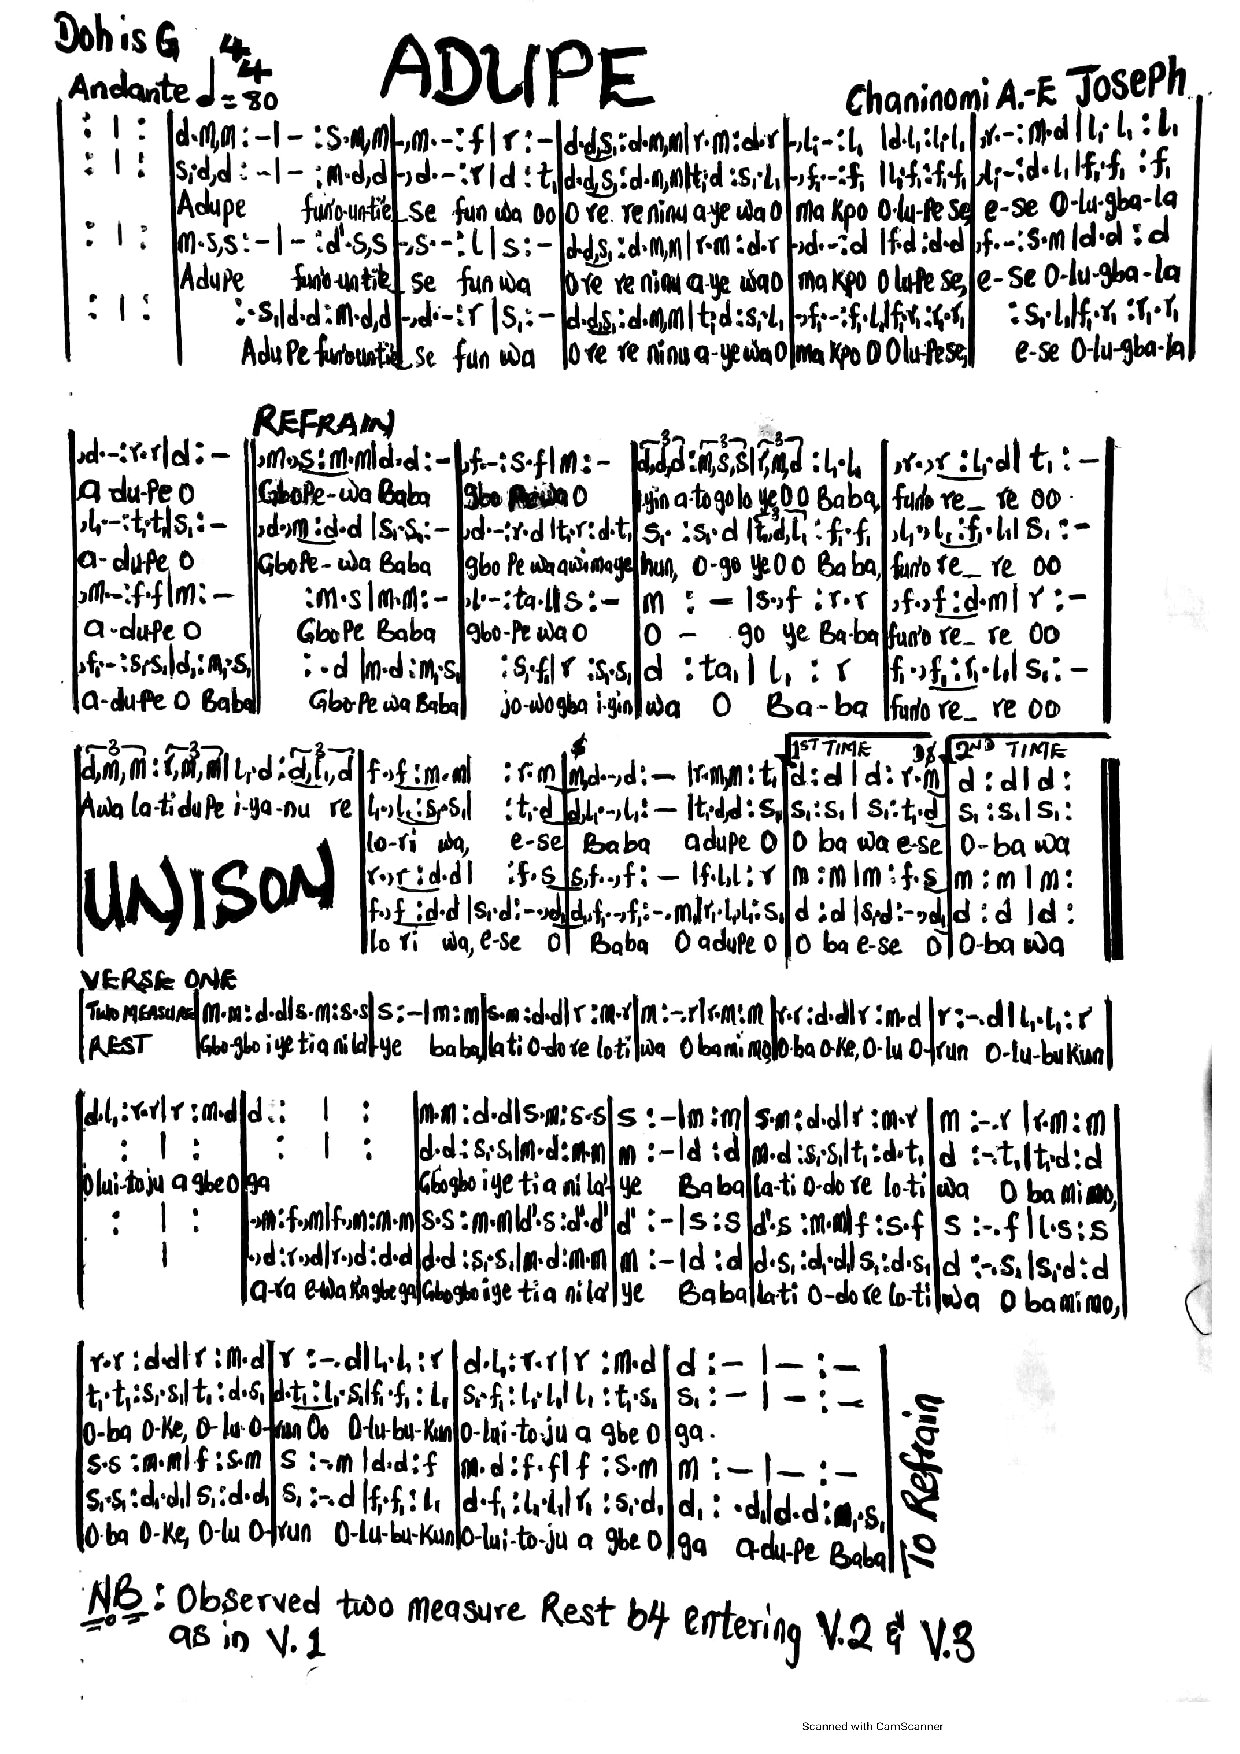 Doh is G 4/4
ADUPE
Andante ♩=80
Chaninomi A.-E Joseph
: | : |d.m,m:-|-:s.m,m|-,m.-:f|r:-|d.d,s₁:d.m,m|r.m:d.r|-,l₁.-:l₁ |d.l₁:l₁.l₁|,r.-:m.d|l₁.l₁:l₁
: | : |s₁.d,d:-|-:m.d,d|-,d.-:r|d:t₁|d.d,s₁:d.m,m|t₁.d:s₁.l₁|-,f₁.-:f₁ |l₁.f₁:f₁.f₁|,l₁.-:d.l₁|f₁.f₁:f₁
Adupe fun'o-un-ti e se fun wa oo O re re ninu a-ye wa O ma kpo O-lu-pe se, e-se O-lu-gba-la
: | : |m.s,s:-|-:d'.s,s|-,s.-:l|s:-|d.d,s₁:d.m,m|r.m:d.r|-,d.-:d |f.d:d.d|,f.-:s.m|d.d:d
Adupe fun'o-un-ti e se fun wa O re re ninu a-ye wa O ma kpo O lu pe se, e-se O-lu-gba-la
: | : |:.s₁|d.d:m.d,d|-,d.-:r|s₁:-|d.d,s₁:d.m,m|t₁.d:s₁.l₁|-,f₁.-:f₁.l₁|f₁.r₁:r₁.r₁|:s₁.l₁|f₁.r₁:r₁.r₁
Adupe fun'o-un-ti e se fun wa O re re ninu a-ye wa O ma kpo O Olu-pe se, e-se O-lu-gba-la
REFRAIN
,d.-:r.r|d:-|,m.,s:m.m|d.d:-|,f.-:s.f|m:-|d,d,d:m,s,s|r,m,d:l₁.l₁|,r.,r:l₁.d|t₁:-
a du-pe O Gbope-wa Baba gbo O iyin a-to go lo ye O O Baba, fun'o re_ re oo
,l₁.-:t₁.t₁|s₁:-|,d.,m:d.d|s₁.s₁:-|,d.-:r.d|t₁.r:d.t₁|s₁.:s₁.d|t₁,d,l₁:f₁.f₁|,l₁.,l₁:f₁.l₁|s₁:-
a-du-pe O Gbope-wa Baba gbo pe wa awimaye hun, O-go ye O O Baba, fun'o re_ re oo
,m.-:f.f|m:-|:m.s|m.m:-|,l.-:ta.l|s:-|m:-|s.,f:r.r|,f.,f:d.m|r:-
a-dupe O Gbope Baba gbo-pe wa O O - go ye Ba-ba fun'o re_ re oo
,f₁.-:s₁.s₁|d₁:m₁.s₁|:.d|m.d:m₁.s₁|:s₁.f|r:s₁.s₁|d:ta₁|l₁:r|f₁.,f₁:r₁.l₁|s₁:-
a-dupe O Baba Gbo-pe wa Baba jo-wo gba i-yin wa O Ba-ba fun'o re_ re oo
1ST TIME D$ 2ND TIME
d,m,m:r,m,m|l₁.d:d,l₁,d|f.,f:m.m| :r.m|m,d.-,d:-|r.m,m:t₁|d:d|d:r.m|d:d|d:
Awa la-ti dupe i-ya-nu re |l₁.,l₁:s₁.s₁| :t₁.d|d,l₁.-,l₁:-|t₁.d,d:s₁|s₁:s₁|s₁:t₁.d|s₁:s₁|s₁:
lo-ri wa, e-se Baba adupe O O ba wa e-se O-ba wa
UNISON
r.,r:d.d| :f.s|s,f.-,f:-|f.l,l:r|m:m|m:f.s|m:m|m:
f₁.,f₁:d.d|s₁.d:-.,d₁|d₁,f₁.-,f₁:-.m₁|r₁.l₁,l₁:s₁|d:d|s₁.d:-.,d₁|d:d|d:
lo ri wa, e-se O Baba O adupe O O ba e-se O O-ba wa
VERSE ONE
TWO MEASURE REST |m.m:d.d|s.m:s.s|s:-|m:m|s.m:d.d|r:m.r|m:-.r|r.m:m|r.r:d.d|r:m.d|r:-.d|l₁.l₁:r|
Gbogbo iye ti a ni la'-ye baba, lati O-do re lo ti wa O bami mo, O-ba O-ke, O-lu O-run O-lu-bu kun
d.l₁:r.r|r:m.d|d.: | : |m.m:d.d|s.m:s.s|s:-|m:m|s.m:d.d|r:m.r|m:-.r|r.m:m
: | : | : | : |d.d:s₁.s₁|m.d:m.m|m:-|d:d|m.d:s₁.s₁|t₁:d.t₁|d:-.t₁|t₁.d:d
O lui-to-ju a gbe O ga Gbogbo iye ti a ni la'ye Baba la-ti O-do re lo-ti wa O ba mi mo,
: | : |,m:f.,m|f.,m:m.m|s.s:m.m|d'.s:d'.d'|d':-|s:s|d'.s:m.m|f:s.f|s:-.f|l.s:s
|,d:r.,d|r.,d:d.d|d.d:s₁.s₁|m.d:m.m|m:-|d:d|d.s₁:d₁.d₁|s₁:d.s₁|d:-.s₁|s₁.d:d
a-ra e-wa ka gbe ga Gbogbo iye ti a ni la' ye Baba lati O-do re lo-ti wa O ba mi mo,
r.r:d.d|r:m.d|r:-.d|l₁.l₁:r|d.l₁:r.r|r:m.d|d:-|-:-
t₁.t₁:s₁.s₁|t₁:d.s₁|d.t₁:l₁.s₁|f₁.f₁:l₁|s₁.f₁:l₁.l₁|l₁:t₁.s₁|s₁:-|-:-
O-ba O-ke, O-lu O-run Oo O-lu-bu-kun O-lui-to-ju a gbe O ga.
s.s:m.m|f:s.m|s:-.m|d.d:f|m.d:f.f|f:s.m|m:-|-:-
s₁.s₁:d₁.d₁|s₁:d.d|s₁:-.d|f₁.f₁:l₁|d.f₁:l₁.l₁|r₁:s₁.d₁|d₁:.d₁|d.d:m₁.s₁
O-ba O-ke, O-lu O-run O-lu-bu-kun O-lui-to-ju a gbe O ga a-du-pe Baba
To Refrain
NB: Observed two measure Rest b4 entering V.2 & V.3
as in V.1
Scanned with CamScanner